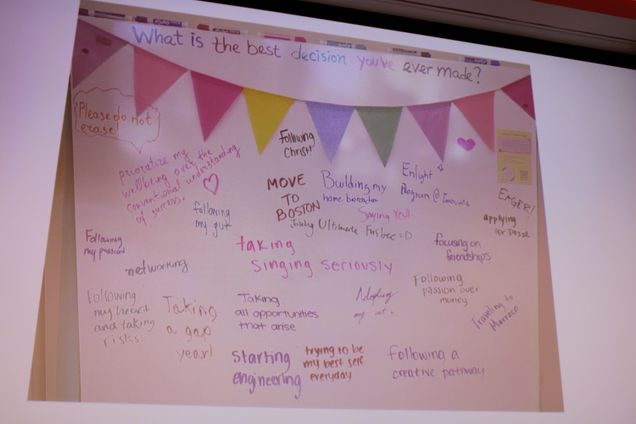 What is the best decision you've ever made?
Please do not
erase!
Following
Christ
prioritize my
wellbeing over the
conventional understanding
of success.
following
my gut
MOVE
TO
BOSTON
Building my
home
Saying Yes!
Joining Ultimate Frisbee =D
Enlight
Program @
applying
for
Following
my passion
networking
taking
singing seriously
focusing on
friendships
Following
my heart
and taking
risks
Taking
a gap
year!
Taking
all opportunities
that arise
Adopting
my cat.
Following
passion over
money
Traveling to
Morocco
Starting
engineering
trying to be
my best self
everyday
Following a
creative pathway